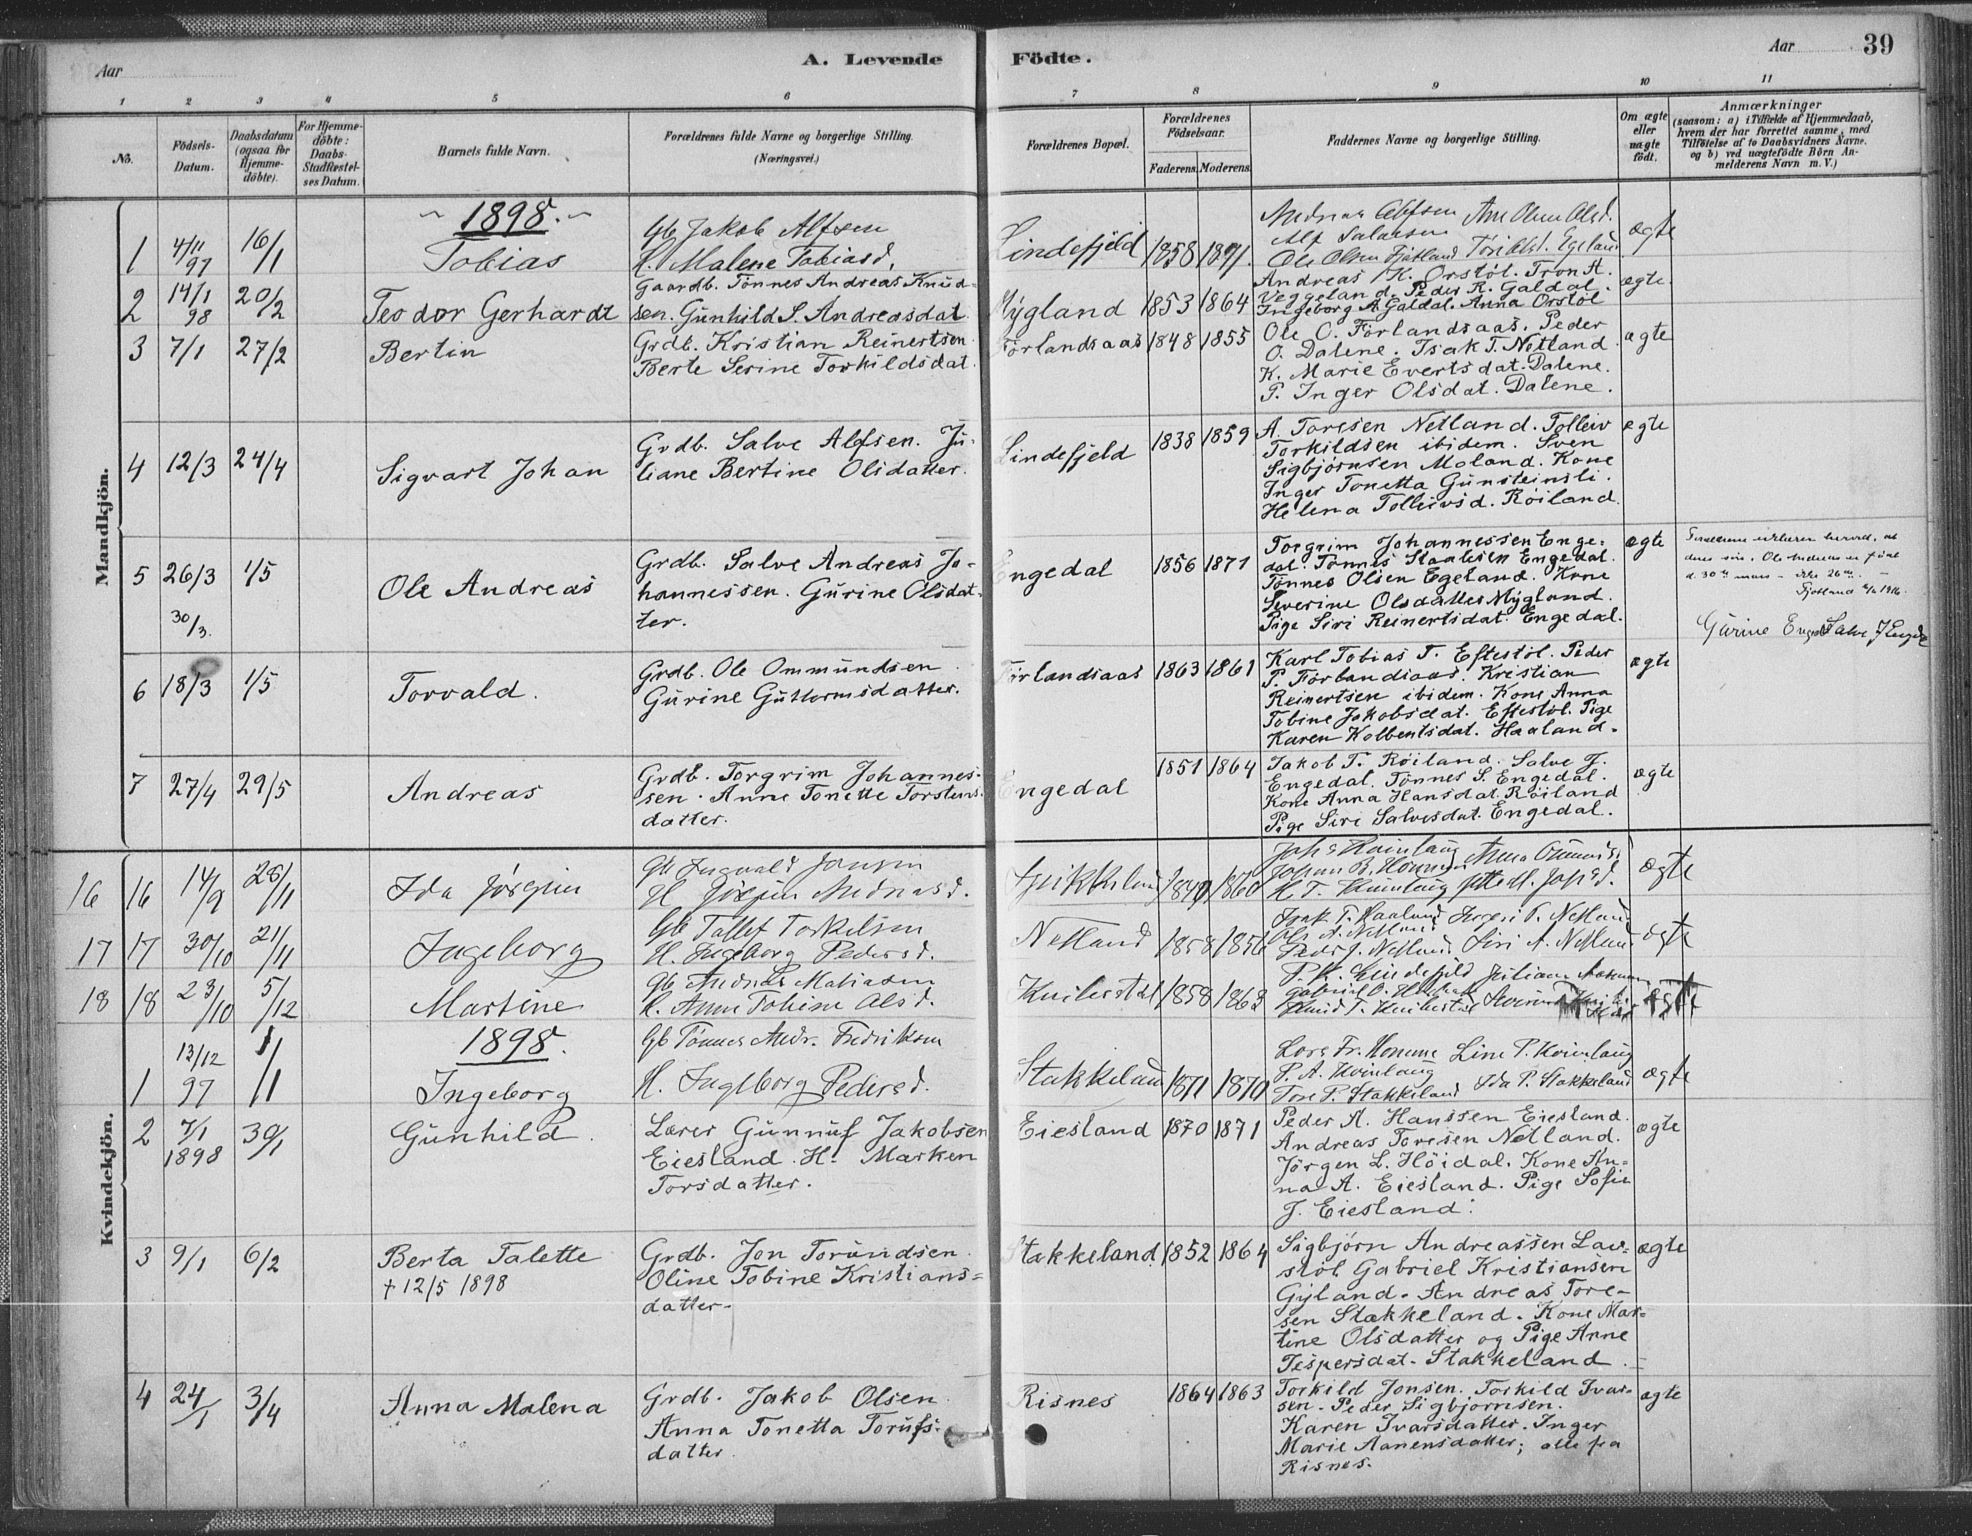 Aar
A. Levende
Födte.
Aar
39
1 2 3 4 5 6 7 8 9 10 11
No.
Födsels-Datum.
Daabsdatum (ogsaa for Hjemme-döbte).
For Hjemme-döbte: Daabs-Stadfæstel-ses Datum.
Barnets fulde Navn.
Forældrenes fulde Navne og borgerlige Stilling. (Næringsvei.)
Forældrenes Bopæl.
Forældrenes Födselsaar.
Faderens. Moderens.
Faddernes Navne og borgerlige Stilling.
Om ægte eller uægte födt.
Anmærkninger
(saasom: a) i Tilfælde af Hjemmedaab, hvem der har forrettet samme, med Tilföielse af to Daabsvidners Navne, og b) ved uægtefödte Börn An-melderens Navn m. V.)
Mandkjön.
~ 1898. ~
1 4/11 97 16/1
Tobias
Gb Jakob Alfsen
H. Malene Tobiasd.
Lindefjeld 1858
Ole Olsen Fjotland
ægte
2 14/1 98 20/2
Teodor Gerhardt
Gaardb. Tönnes Andreas Knud-
sen. Gunhild S. Andreasdat.
Mygland 1853 1864
Andreas K. Orstöl. Tron A.
Veggeland. Peder R. Galdal.
Ingeborg A. Galdal. Anna Orstöl
ægte.
3 7/1 27/2
Bertin
Grdb. Kristian Reinertsen
Berte Serine Torkildsdat.
Förlandsaas 1848 1855
Ole O. Förlandsaas. Peder
O. Dalene. Isak T. Netland.
K. Marie Evertsdat. Dalene.
P. Inger Olsdat. Dalene.
ægte
4 12/3 24/4
Sigvart Johan
Grdb. Salve Alfsen. Ju-
liane Bertine Olsdatter.
Lindefjeld 1838 1859
A. Toresen Netland. Tolleiv
Torkildsen ibidem. Sven
Sigbjørnsen Moland. Kone
Inger Tonetta Gunsteinsli.
Helena Tolleivsd. Röiland.
ægte
5 26/3 1/5
30/3.
Ole Andreas
Grdb. Salve Andreas Jo-
hannessen. Gurine Olsdat-
ter.
Engedal 1856 1871
Torgrim Johannessen Enge-
dal. Tönnes Staalesen Engedal.
Tönnes Olsen Egeland. Kone
Severine Olsdatter Mygland.
Pige Siri Reinertsdat. Engedal.
ægte
Forældrene erklærer herved, at
deres sön, Ole Andreas er født
d. 30te mars – ikke 26de. –
Fjotland 1916.
Gurine Engedal Salve J Engedal
6 18/3 1/5
Torvald.
Grdb. Ole Ommundsen
Gurine Guttormsdatter.
Förlandsaas 1863 1861
Karl Tobias T. Eftestöl. Peder
P. Förlandsaas. Kristian
Reinertsen ibidem. Kone Anna
Tobine Jakobsdat. Eftestöl. Pige
Karen Kolbentsdat. Haaland.
ægte
7 27/4 29/5
Andreas
Grdb. Torgrim Johannes-
sen. Anne Tonette Torstens-
datter.
Engedal 1851 1864
Jakob T. Röiland. Salve J.
Engedal. Tönnes S. Engedal.
Kone Anna Hansdat. Röiland
Pige Siri Salvesdat. Engedal.
ægte
Kvindekjön.
16 16 14/9 28/11
Ida Jörgine
ægte
17 17 30/10 21/11
Ingeborg
Gb Tallef Torkelsen
H. Ingeborg Pedersd.
Netland 1858 1856
ægte
18 18 23/10 5/12
Martine
Gb Andreas Matiasen
H. Anne Tobine Olsd.
1858 1863
ægte
1898.
1 13/12 97 1/1
Ingeborg
Gb Tönnes Andr. Fredriksen
H. Ingeborg Pedersd.
Stakkeland 1871 1870
Tore P. Stakkeland Ida P. Stakkeland
ægte
2 7/1 1898 30/1
Gunhild.
Lærer Gunnuf Jakobsen
Eiesland. H. Marken
Torsdatter.
Eiesland 1870 1871
Peder A. Hanssen Eiesland.
Andreas Toresen Netland.
Jörgen L. Höidal. Kone An-
na A. Eiesland. Pige Sofie
J. Eiesland.
ægte
3 9/1 6/2
Berta Talette
† 12/5 1898
Grdb. Jon Torundsen.
Oline Tobine Kristians-
datter.
Stakkeland. 1852 1864
Sigbjörn Andreassen Lav-
stöl. Gabriel Kristiansen
Gyland. Andreas Tore-
sen Stakkeland. Kone Mar-
tine Olsdatter og Pige Anne
Jespersdat. Stakkeland.
ægte
4 24/1 3/4
Anna Malena
Grdb. Jakob Olsen.
Anna Tonetta Torufs-
datter.
Risnes 1864 1863
Torkild Jonsen. Torkild Ivar-
sen. Peder Sigbjörnsen.
Karen Ivarsdatter. Inger
Marie Aanensdatter; alle fra
Risnes.
ægte